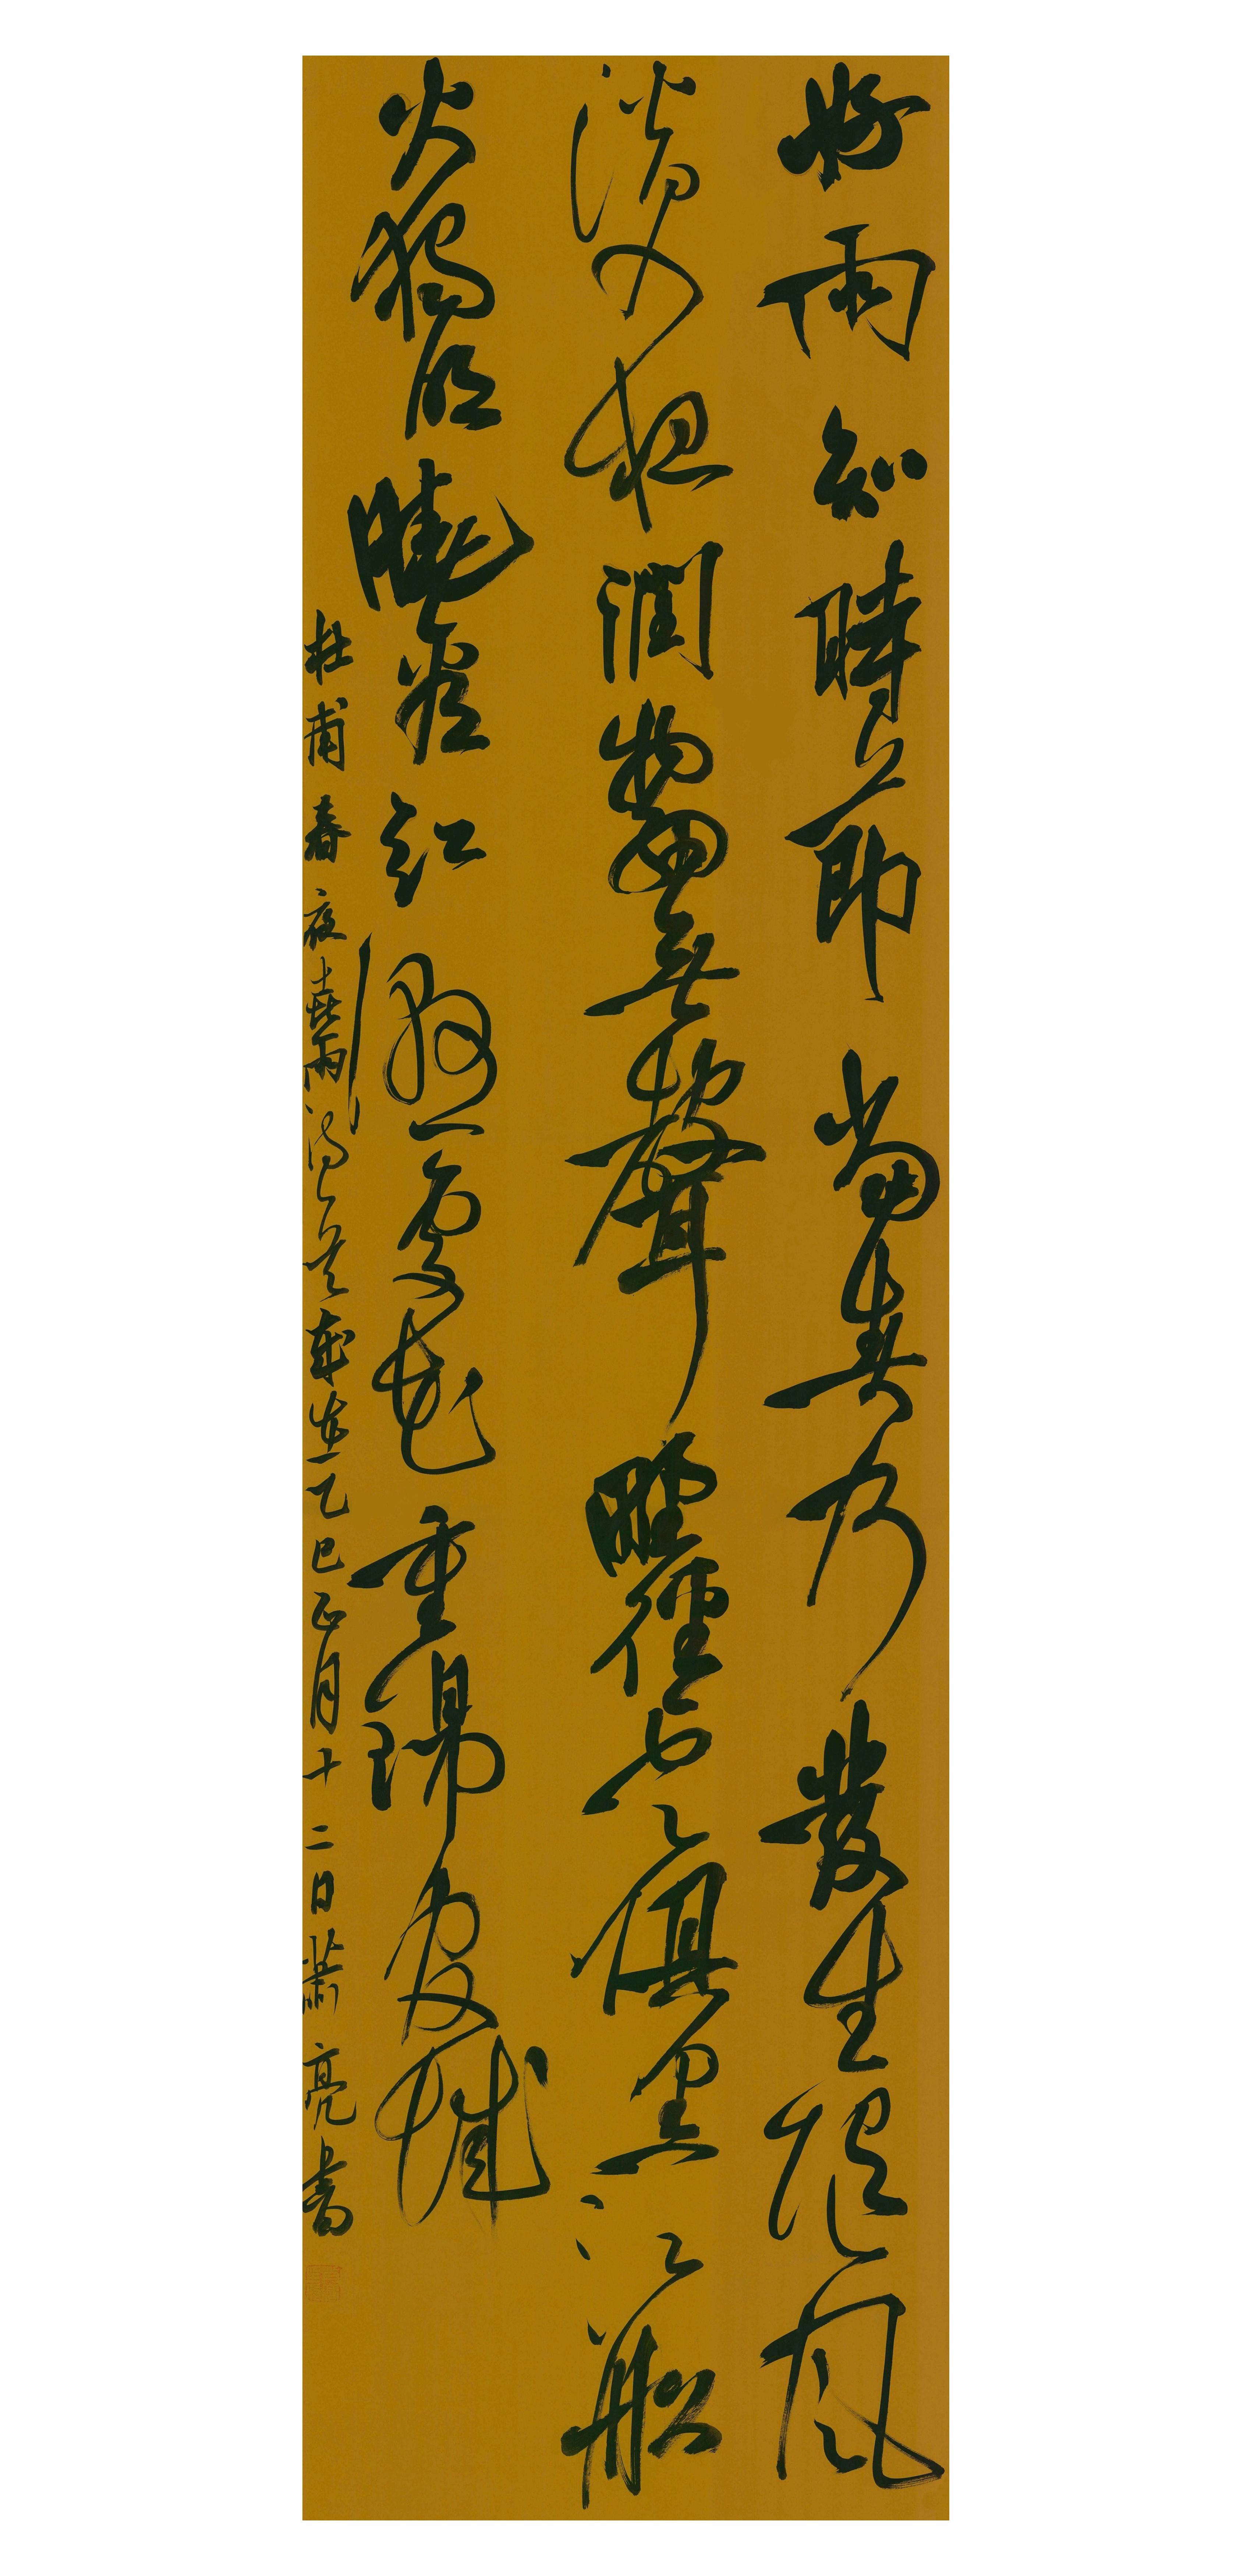 好雨知時節當春乃發生隨風
潛入夜潤物細無聲野徑雲俱黑江船
火獨明曉看紅濕處花重錦官城
杜甫春夜喜雨詩一首歲在乙巳正月十二日蕭亮書